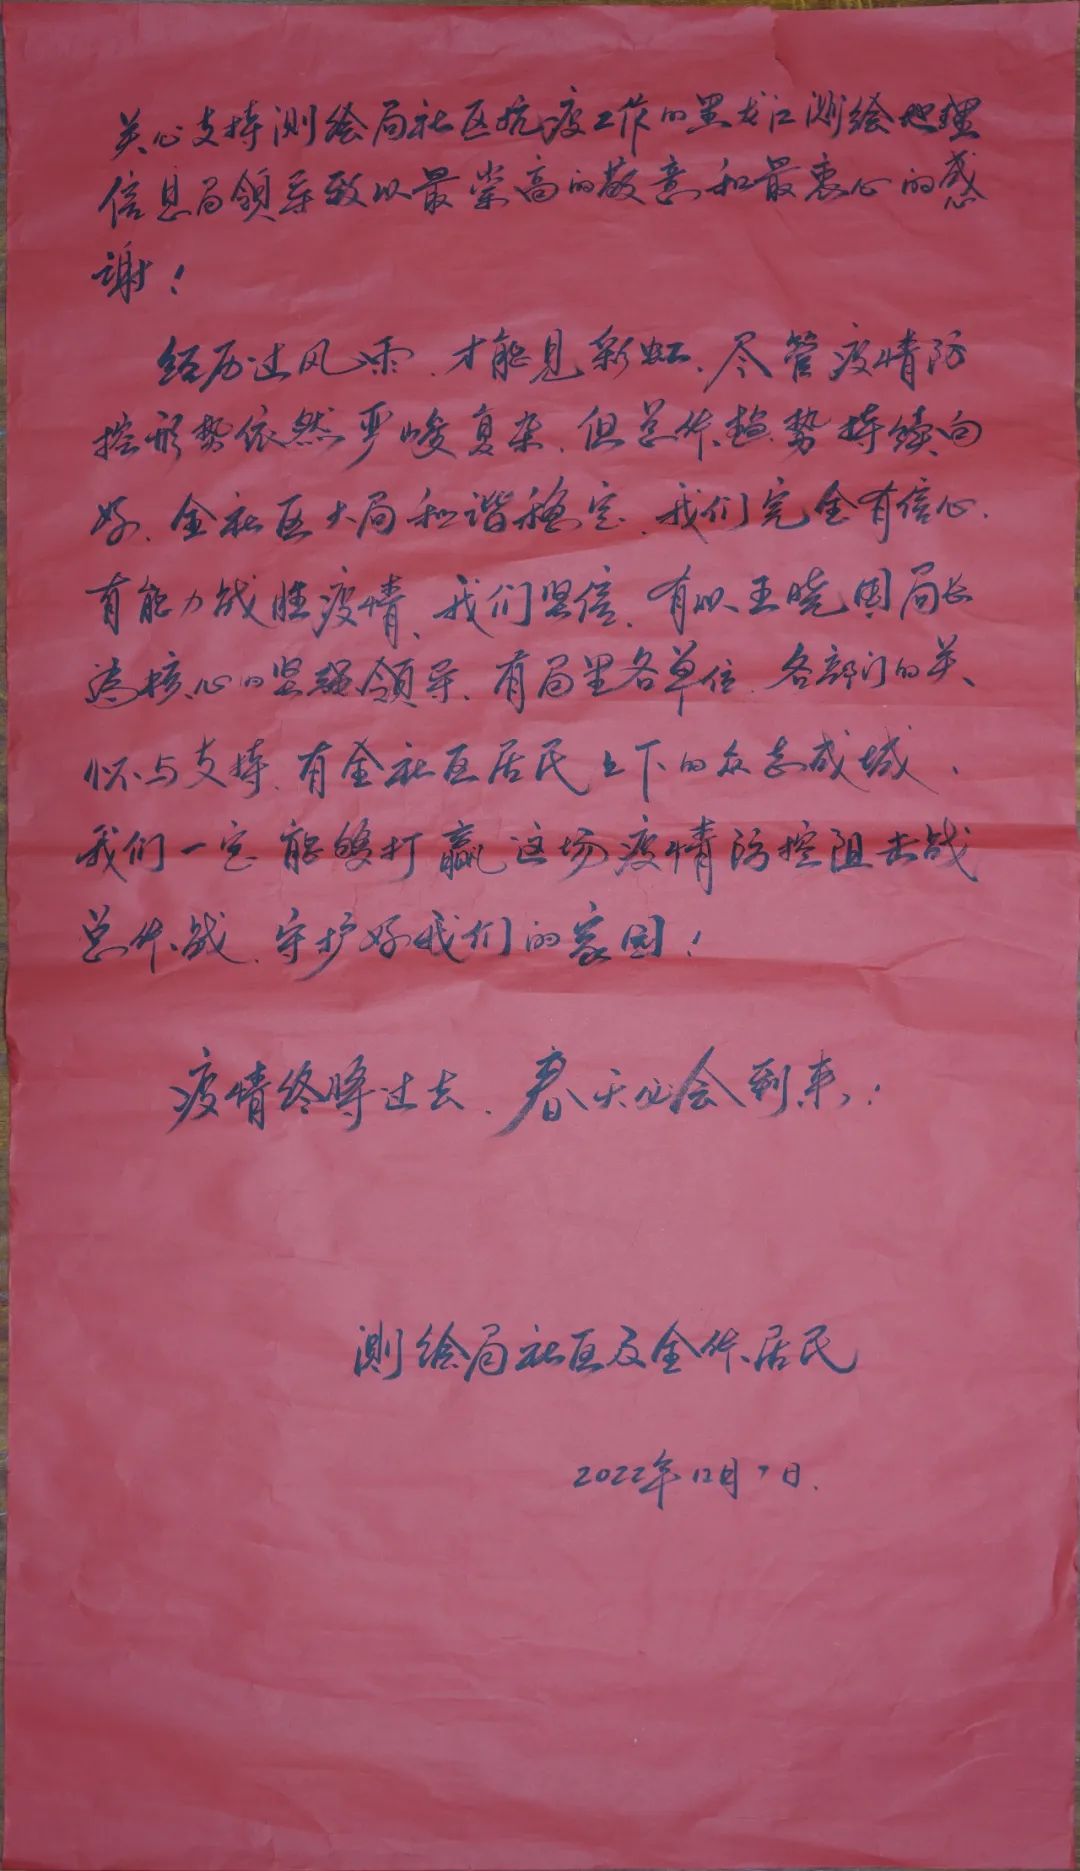 关心支持测绘局社区抗疫工作的黑龙江测绘地理
信息局领导致以最崇高的敬意和最衷心的感
谢！
经历过风雨、才能见彩虹、尽管疫情防
控形势依然严峻复杂、但总体趋势持续向
好、全社区大局和谐稳定、我们完全有信心、
有能力战胜疫情、我们坚信、有以王晓国局长
为核心的坚强领导、有局里各单位、各部门的关
怀与支持、有全社区居民上下的众志成城、
我们一定能够打赢这场疫情防控阻击战
总体战、守护好我们的家园！
疫情终将过去、春天必会到来！
测绘局社区及全体居民
2022年12月7日.